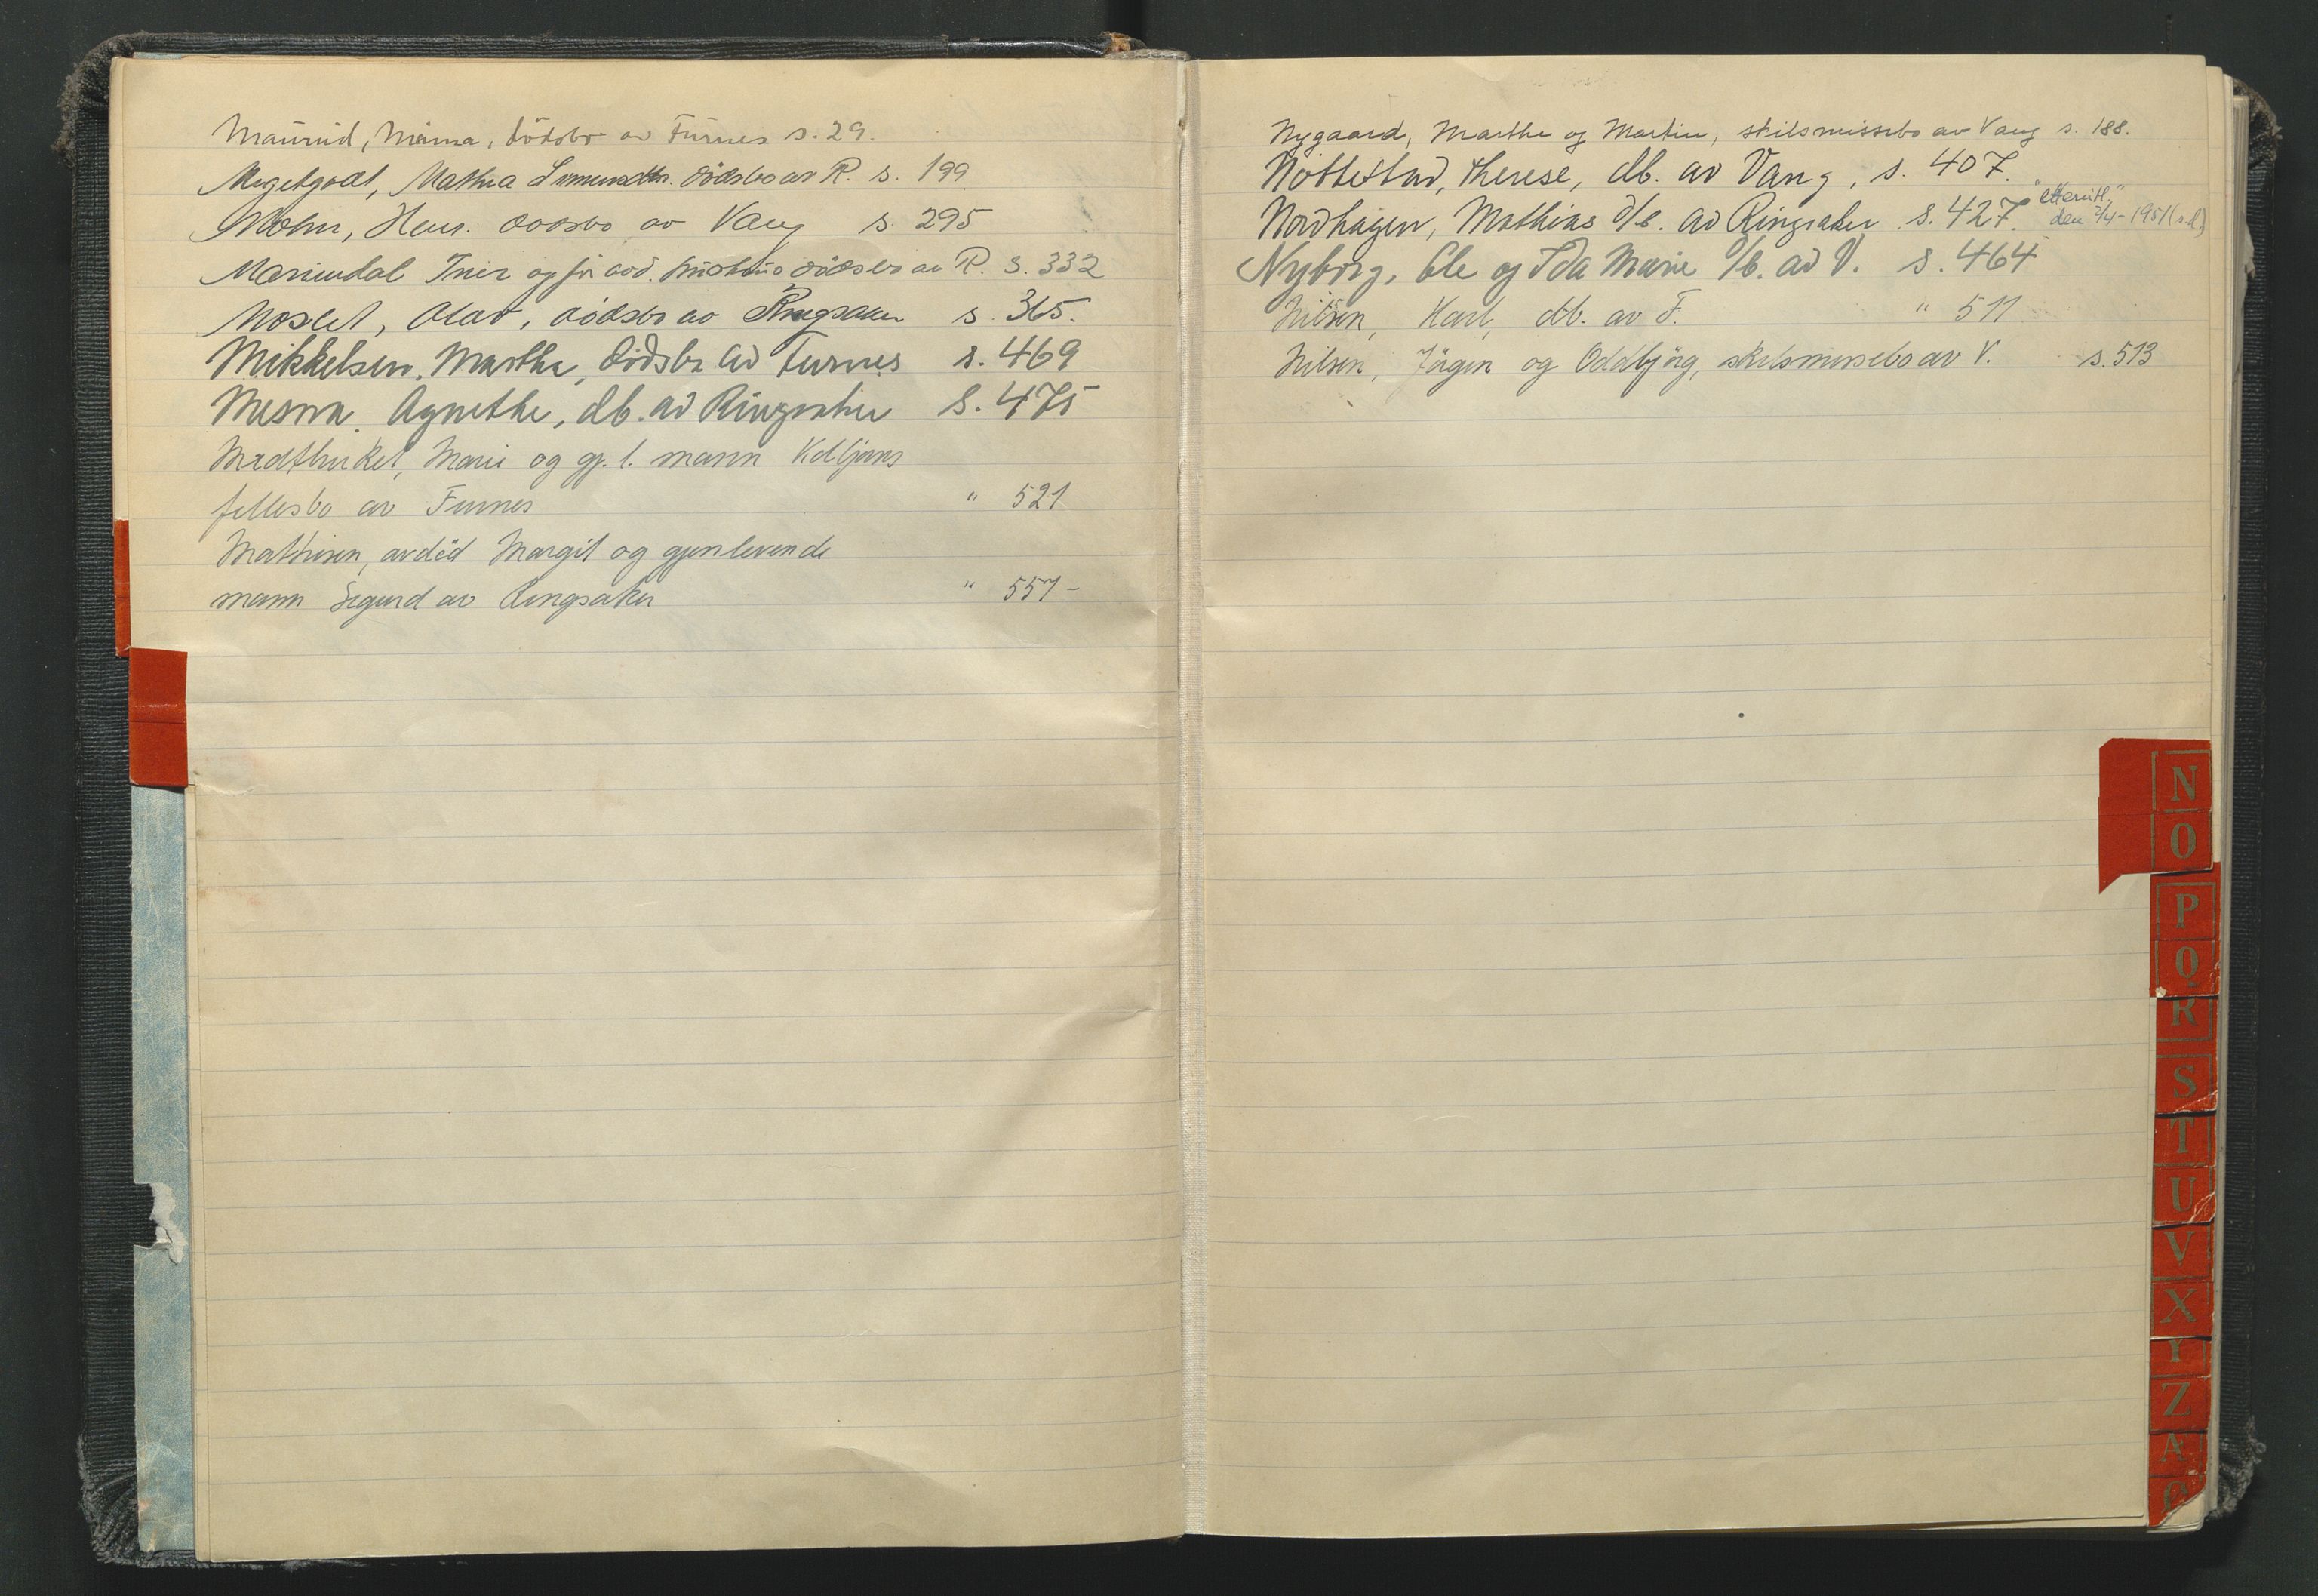 Maurud, Minna, dödsbo av Furnes s. 29.
Megetgodt, Mathea dödsbo av R. s. 199
Mohn, Henr. dödsbo av Vang s. 295
Mariendal og dödsbo av R. s. 332
Moslet, Olav, dödsbo av Ringsaker s. 365.
Mikkelsen, Marthe, dödsbo av Furnes s. 469
Mesna, Agnethe, db. av Ringsaker s. 475
Marie og gj. l. mann
fellesbo av Furnes " 521
Mathisen, avdöd Margit og gjenlevende
mann Sigurd av Ringsaker " 557-
Nygaard, Marthe og Martin, skilsmissebo av Vang s. 188.
Nöttestad, Therese, db. av Vang, s. 407.
Nordhagen, Mathias d/b. av Ringsaker s. 427.
den 7/4-1951 (s.d.)
Nyborg, Ole og Ida Marie d/b. av V. s. 464
Nilsen, Karl, db. av F. " 511
Nilsen, Jörgen og Oddbjörg, skilsmissebo av V. s. 513
N
O
P
Q
R
S
T
U
V
X
Y
Z